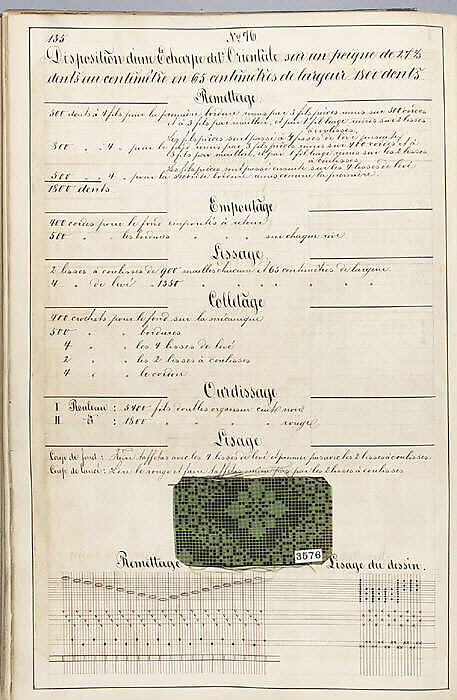 135
No. 76
Disposition d'une Echarpe dite Orientale sur un peigne de 27 7/
dents au centimètre en 65 centimètres de largeur 1800 dents.
Remettage
500 dents à 4 fils pour la première bordure mus par 3 fils pièces mus sur 500 cordes
et à 3 fils par maillon, et par 1 fil lié mus sur 2 lisses
à coulisses.
Les fils pièces sont passé à 4 lisses de levé
800 " " 4 " pour le fond mus par 3 fils pièces mus sur 400 cordes et à
fils par maillon, et par 1 fil lié mus sur les 2 lisses
à coulisses
Les fils pièces sont passé ensuite sur les 4 lisses de levé
500 " " 4 " pour la seconde bordure mus comme la première.
1800 dents
Empoutage
400 cordes pour le fond empoutés à retour
500 " " les bordures " " " sur chaque
Lissage
2 lisses à coulisses de 900 mailles chacune et 65 centimètres de largeur
4 " de levé " 1350 " " " " " "
Colletage
400 crochets pour le fond sur la mécanique
500 " " bordures
4 " " les 4 lisses de levé
2 " " les 2 lisses à coulisses
4 " " le cordon
Ourdissage
I Rouleau : 5400 fils doubles organsin cuit noir
II d° : 1800 " " " " rouge
Lisage
Coup de fond : taffetas avec les 4 lisses de levé et pas avec les 2 lisses à coulisses.
Coup de lancé : Lire le rouge et faire taffetas même pas par les 2 lisses à coulisses
3576
Remettage
Lisage du dessin.